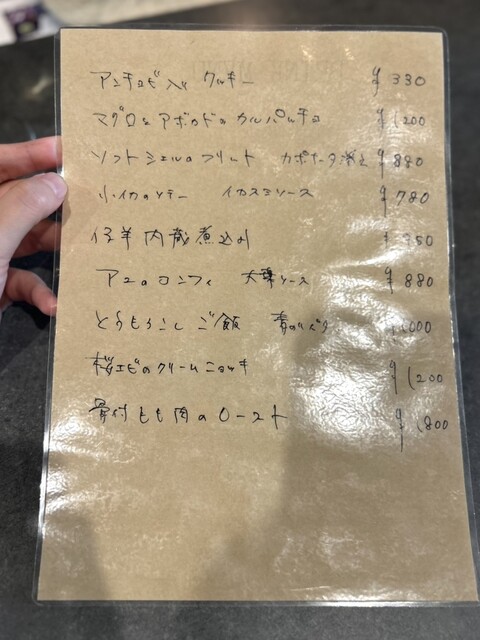 アンチョビ入り クッキー ¥330
マグロとアボカドのカルパッチョ ¥1200
ソフトシェルのフリット カポナータ添え ¥880
小イカのソテー イカスミソース ¥780
仔羊内蔵煮込み ¥950
アユのコンフィ 大葉ソース ¥880
とうもろこしご飯 青のりバター ¥1000
桜エビのクリームニョッキ ¥1200
骨付もも肉のロースト ¥1800